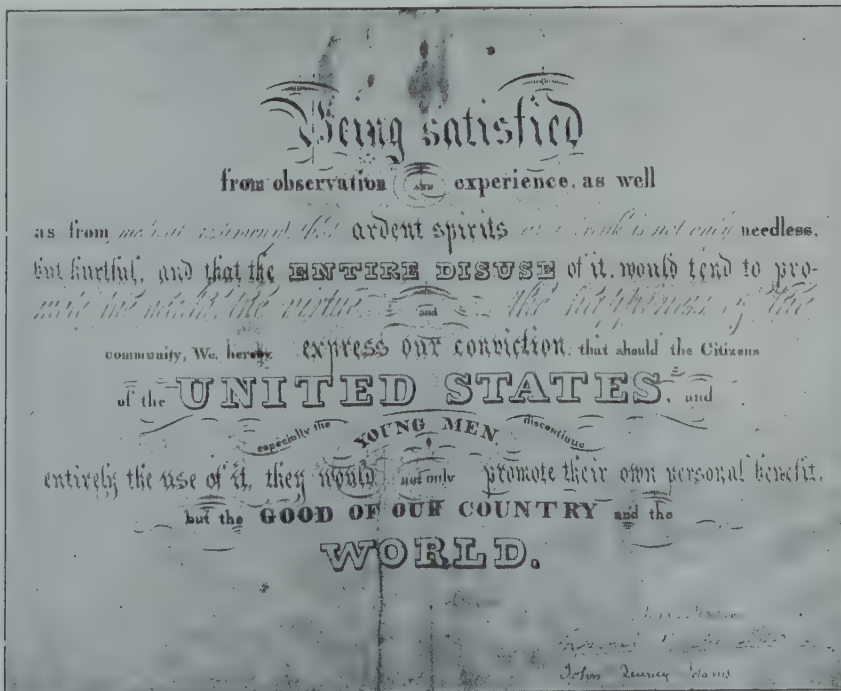 Being satisfied
from observation AND experience, as well
as from medical testimony, that ardent spirits as a drink is not only needless,
but hurtful, and that the ENTIRE DISUSE of it, would tend to pro-
mote the health, the virtue, and the happiness of the
community, We, hereby express our conviction, that should the Citizens
of the UNITED STATES, and
especially the YOUNG MEN, discontinue
entirely the use of it, they would not only promote their own personal benefit,
but the GOOD OF OUR COUNTRY and the
WORLD.
John Quincy Adams